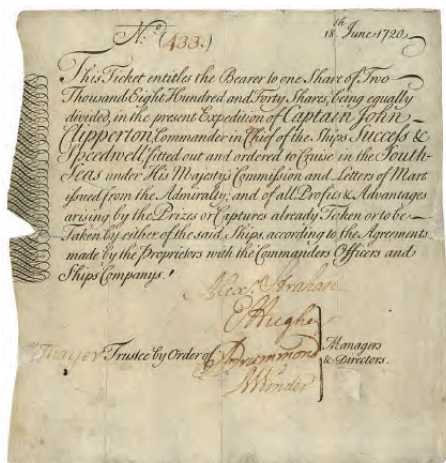 18.th June 1720
N.º (433.)
This Ticket entitles the Bearer to one Share of Two
Thousand Eight Hundred and Forty Shares, being equally
divided, in the present Expedition of Captain John
Clipperton Commander in Chief of the Ships Success &
Speedwell, fitted out and ordered to Cruise in the South-
Seas under His Majesty's Commission and Letters of Mart
issued from the Admiralty; and of all Profits & Advantages
arising by the Prizes or Captures already Taken or to be
Taken by either of the said Ships, according to the Agreements
made by the Proprietors with the Commanders Officers and
Ships Companys.
Alex.r Strahan
E Hughes
Thayer Trustee by Order of Drummond Managers
& Directors.
Winder